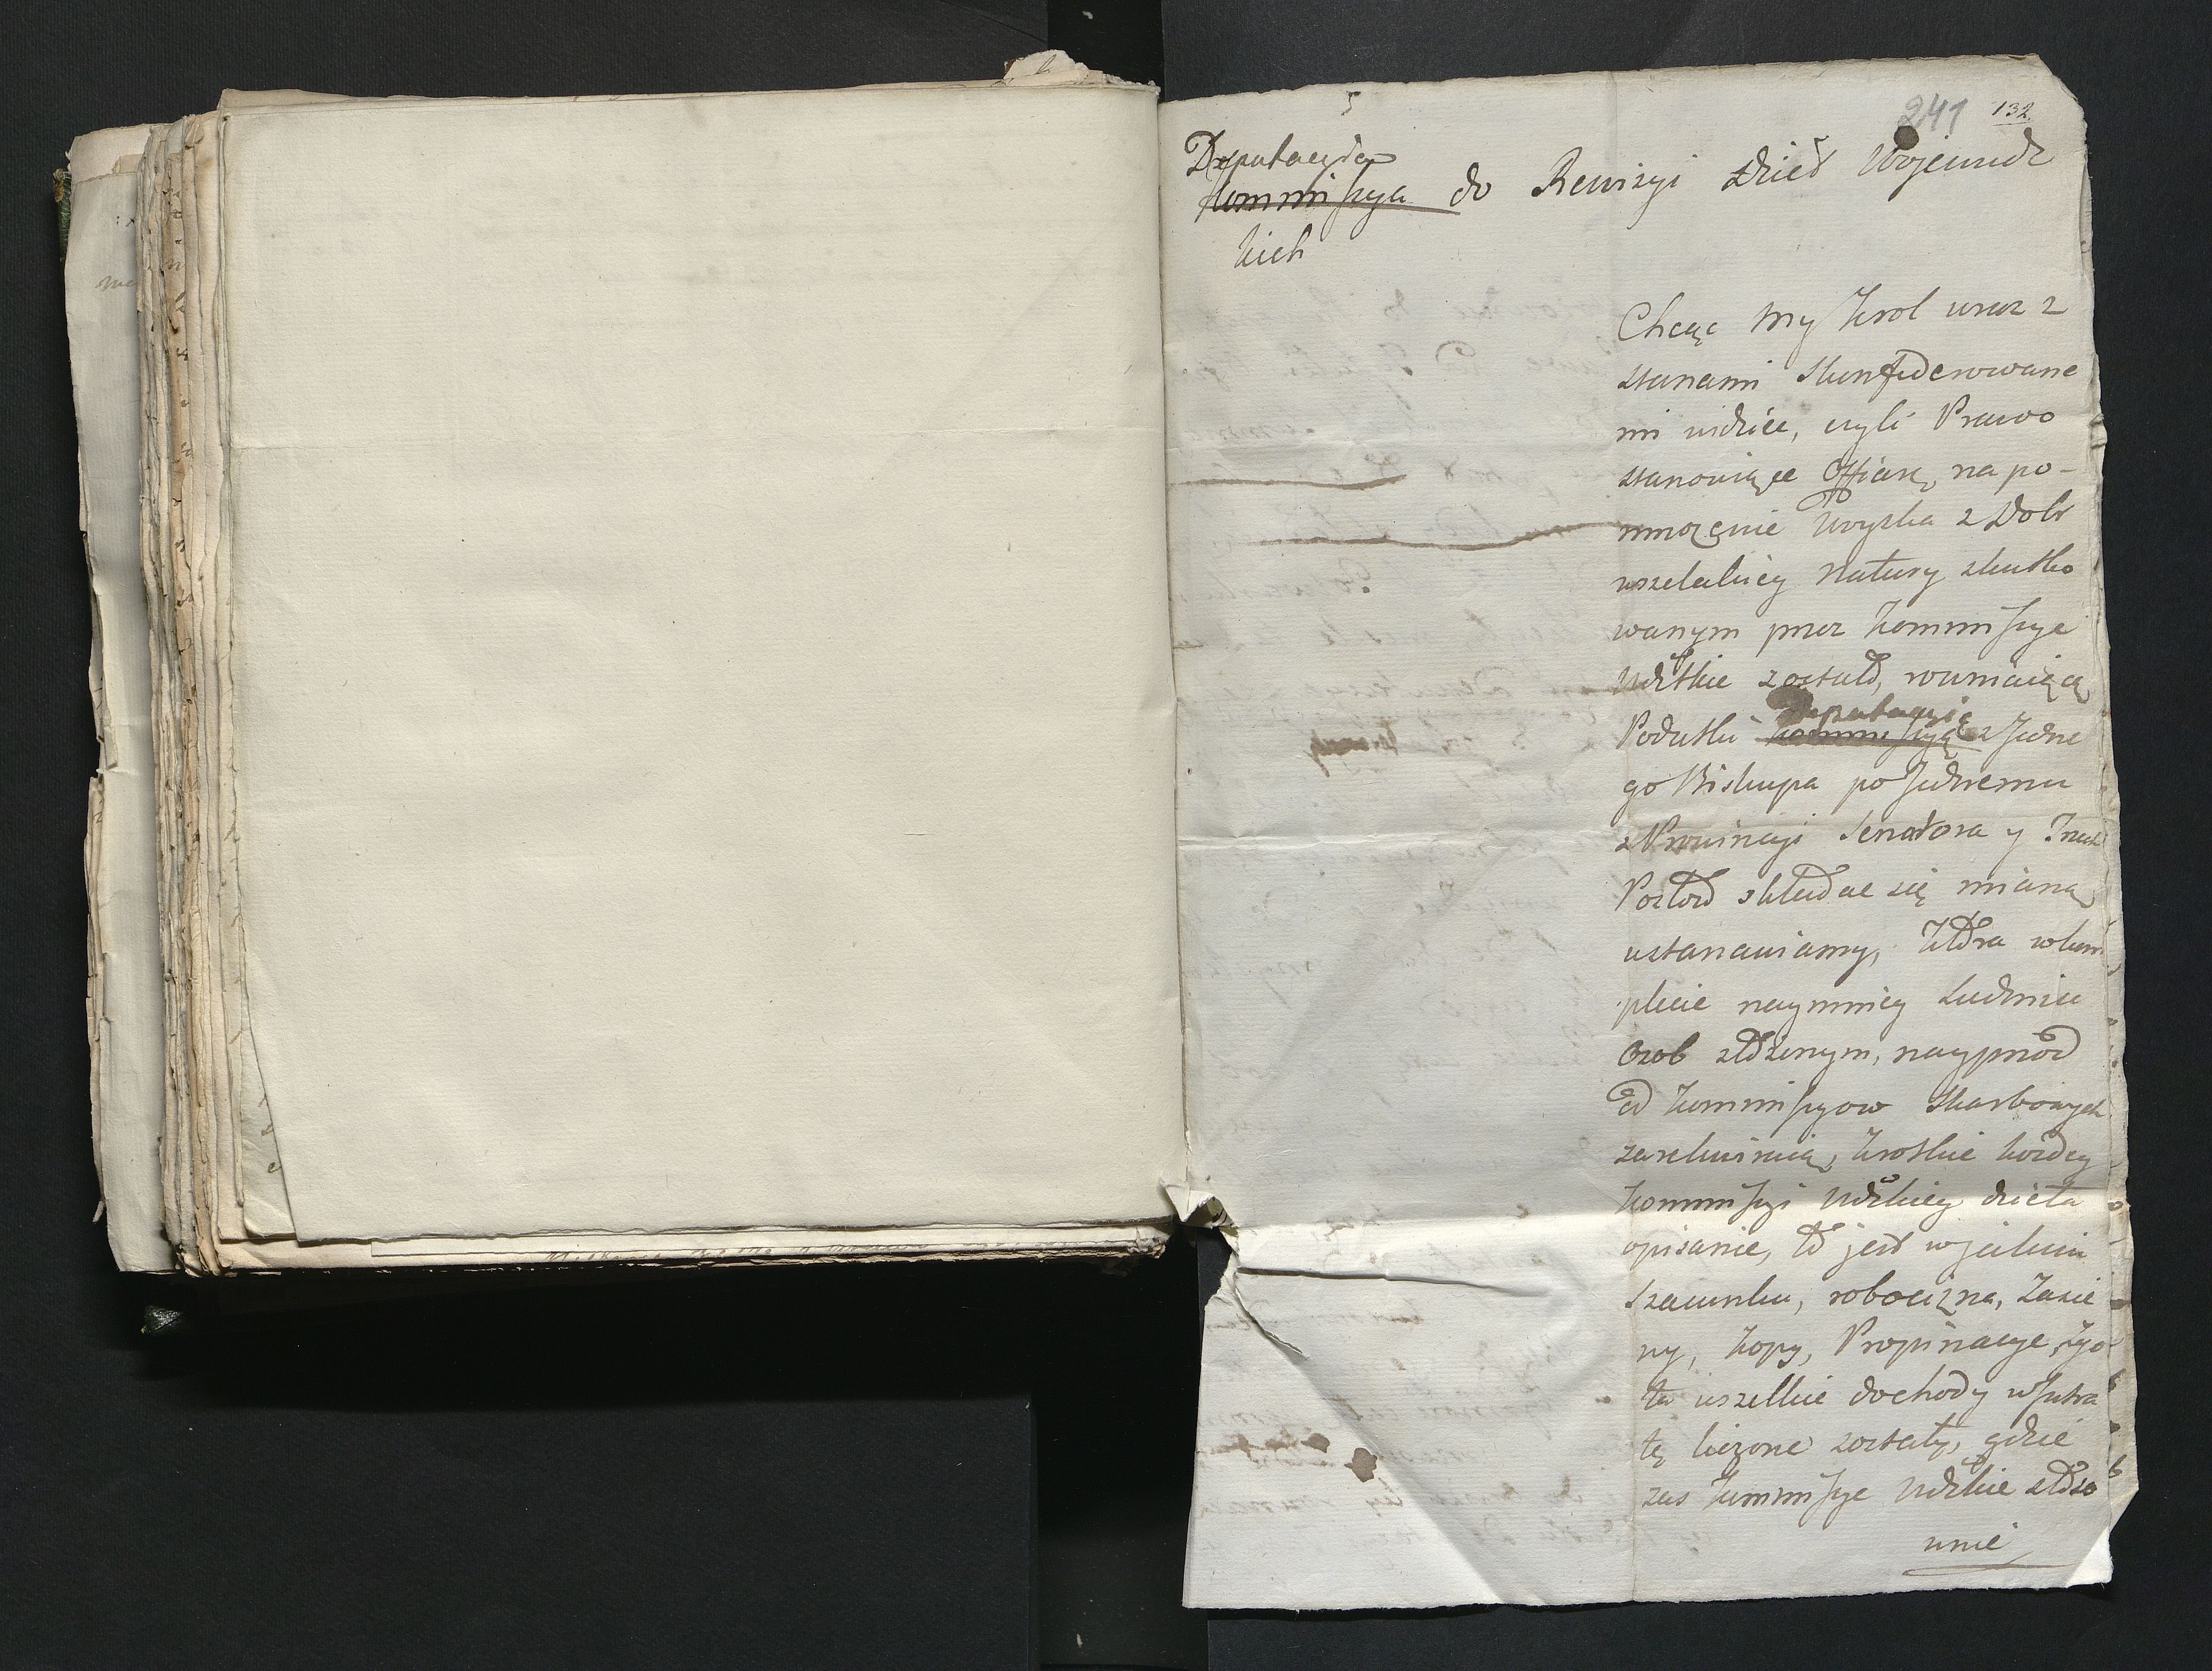 241 132
Deputacyia
Kommissya do Rewizyi Dzieł Wojewodz
kich
Chcąc My Krol wraz z
stanami Skonfederowane
mi widziec, czyli Prawo
stanowiące Offiarę na po-
mnozenie Woyska z Dobr
wszelakiey Natury skutko
wanym przez Kommissye
Wdzkie zostało,
Podatki Deputacyią
Kommissyą z Jedne
go Biskupa po Jednemu
z Prowincyi Senatora y Trzech
Posłow składac się mianą
ustanawiamy, Ktora w kom
plecie naymniey Siedmiu
Osob złożonym, nayprzod
od Kommissyow Skarbowych
Krotkie kożdey
Kommissyi Wdzkiey dzieła
opisanie, to jest w jakim
Szacunku, robocizna, Danie
ny, Kopy, Propinacye, zyo
ta wszelkie dochody w Intra
tę liczone zostały, gdzie
zas Kommissye Wdzkie złożo
unie